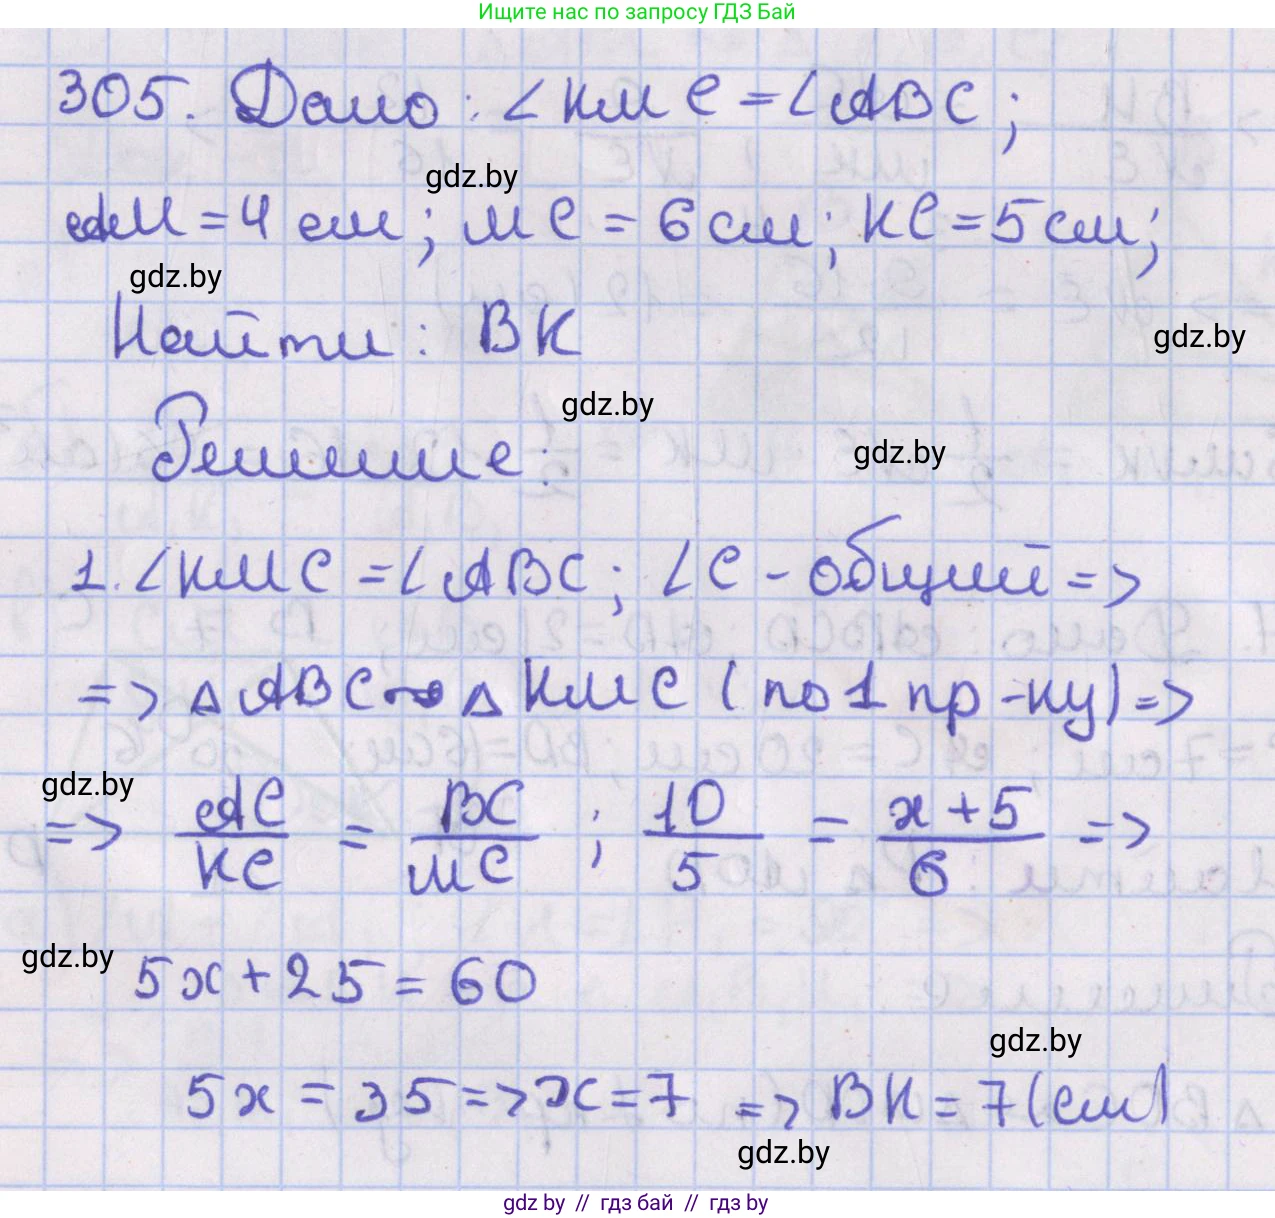 Ищите нас по запросу ГДЗ Бай
305. Дано: ∠KMC = ∠ABC;
gdz.by
AM = 4 см; MC = 6 см; KC = 5 см;
gdz.by
Найти: BK
gdz.by
gdz.by
Решение:
gdz.by
1. ∠KMC = ∠ABC; ∠C - общий =>
=> △ABC ~ △KMC (по 1 пр-ку) =>
gdz.by
=> AC/KC = BC/MC ; 10/5 = x+5/6 =>
gdz.by
5x + 25 = 60
gdz.by
5x = 35 => x = 7 => BK = 7 (см)
gdz.by
gdz by // гдз бай // гдз by